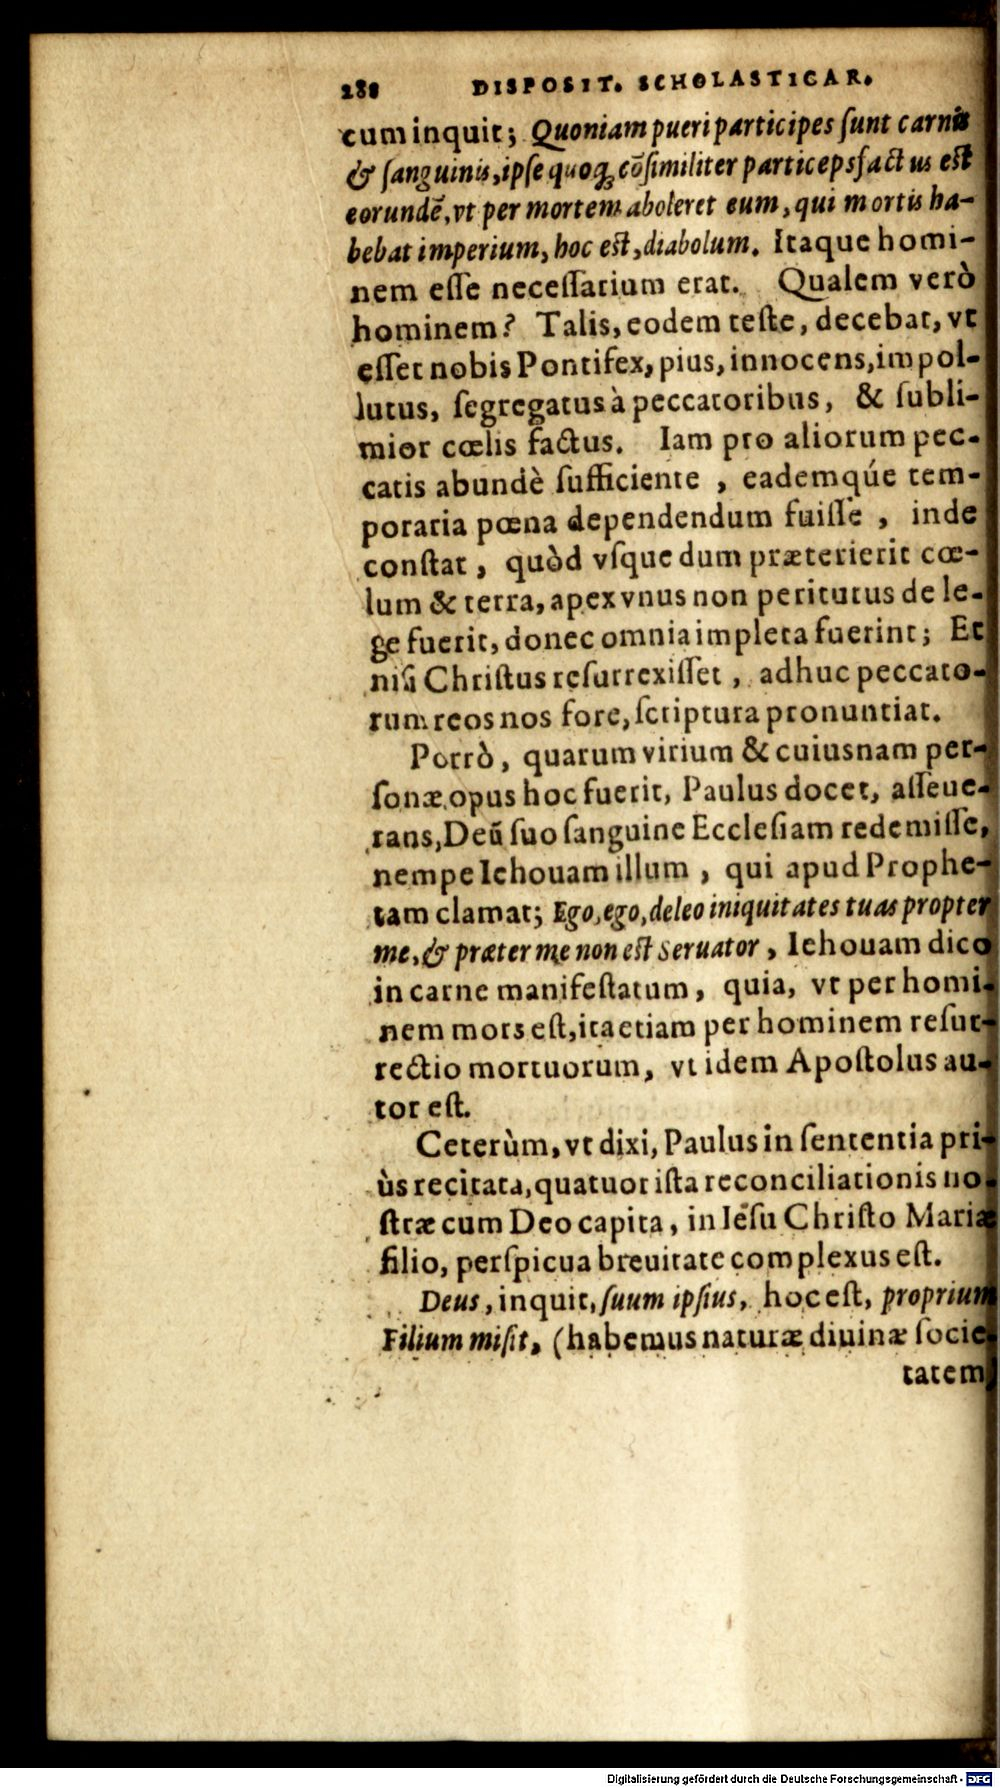 288 DISPOSIT. SCHOLASTICAR.
cum inquit; Quoniam pueri participes ſunt carnis
& ſanguinis, ipſe quoq; cõſimiliter particeps factus eſt
eorundē, vt per mortem aboleret eum, qui mortis ha-
bebat imperium, hoc eſt, diabolum. Itaque homi-
nem eſſe neceſſarium erat. Qualem verò
hominem? Talis, eodem teſte, decebat, vt
eſſet nobis Pontifex, pius, innocens, impol-
lutus, ſegregatus à peccatoribus, & ſubli-
mior cœlis factus. Iam pro aliorum pec-
catis abundè ſufficiente , eademqúe tem-
poraria pœna dependendum fuiſſe , inde
conſtat , quòd vſque dum præterierit cœ-
lum & terra, apex vnus non periturus de le-
ge fuerit, donec omnia impleta fuerint; Et
niſi Chriſtus reſurrexiſſet , adhuc peccato-
rum reos nos fore, ſcriptura pronuntiat.
Porrò, quarum virium & cuiusnam per-
ſonæ opus hoc fuerit, Paulus docet, aſſeue-
rans, Deũ ſuo ſanguine Eccleſiam redemiſſe,
nempe Iehouam illum , qui apud Prophe-
tam clamat; Ego, ego, deleo iniquitates tuas propter
me, & præter me non eſt Seruator , Iehouam dico
in carne manifeſtatum , quia, vt per homi-
nem mors eſt, ita etiam per hominem reſur-
rectio mortuorum, vt idem Apoſtolus au-
tor eſt.
Ceterùm, vt dixi, Paulus in ſententia pri-
ùs recitata, quatuor iſta reconciliationis no-
ſtræ cum Deo capita, in Ieſu Chriſto Mariæ
filio, perſpicua breuitate complexus eſt.
Deus, inquit, ſuum ipſius, hoc eſt, proprium
Filium miſit, (habemus naturæ diuinæ ſocie-
tatem,
Digitalisierung gefördert durch die Deutsche Forschungsgemeinschaft - DFG